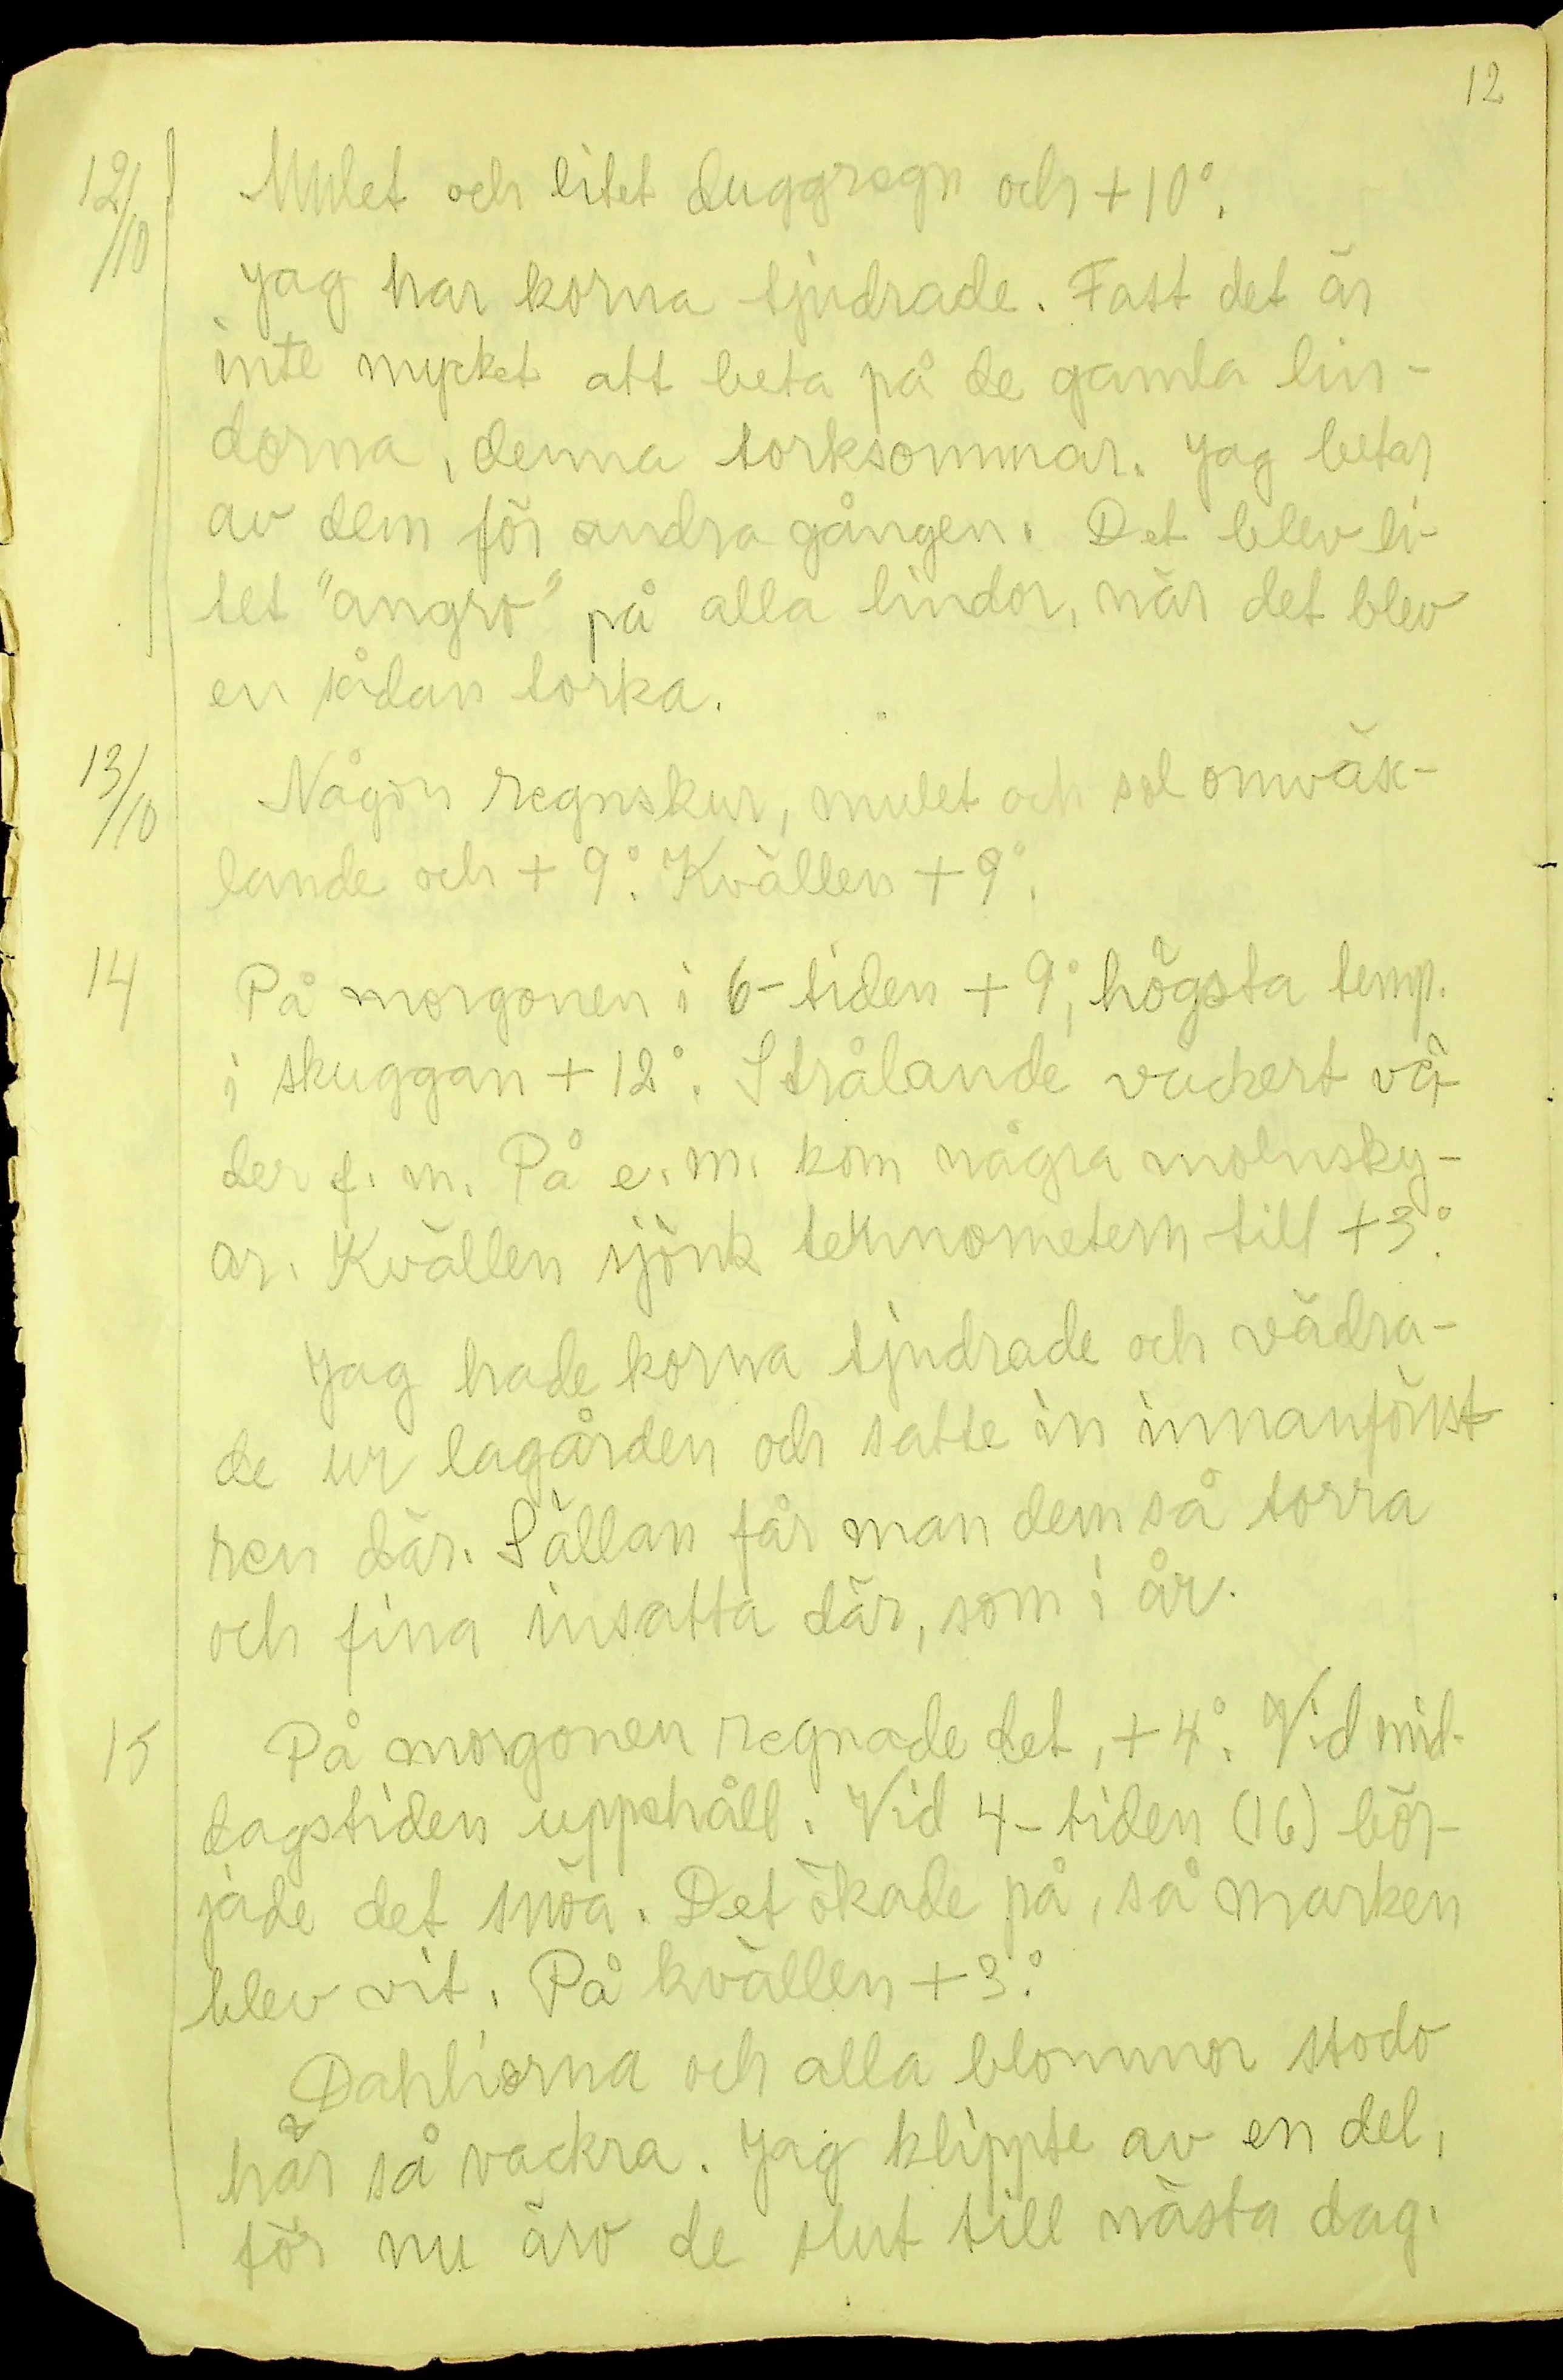 12
12/10 Mulet och litet duggregn och +10°.
Jag har korna tjudrade. Fast det är
inte mycket att beta på de gamla lin-
dorna, denna torksommar. Jag betar
av dem för andra gången. Det blev li-
tet "angro" på alla lindor, när det blev
en sådan torka.
13/10 Någon regnskur, mulet och sol omväx-
lande och + 9°. Kvällen + 9°.
14 På morgonen i 6-tiden + 9°, högsta temp.
i skuggan + 12°. Strålande vackert vä-
der f. m. På e. m. kom några molnsky-
ar. Kvällen sjönk termometern till +3°.
Jag hade korna tjudrade och vädra-
de ur lagården och satte in innanfönst
ren där. Sällan får man dem så torra
och fina insatta där, som i år.
15 På morgonen regnade det, + 4°. Vid mid-
dagstiden uppehåll. Vid 4-tiden (16) bör-
jade det snöa. Det ökade på, så marken
blev vit. På kvällen + 3°.
Dahliorna och alla blommor stodo
här så vackra. Jag klippte av en del,
för nu äro de slut till nästa dag.